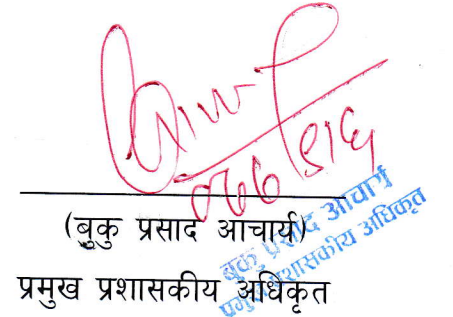 (बुकु प्रसाद आचार्य)
प्रमुख प्रशासकीय अधिकृत
बुकु प्रसाद आचार्य
प्रमुख प्रशासकीय अधिकृत